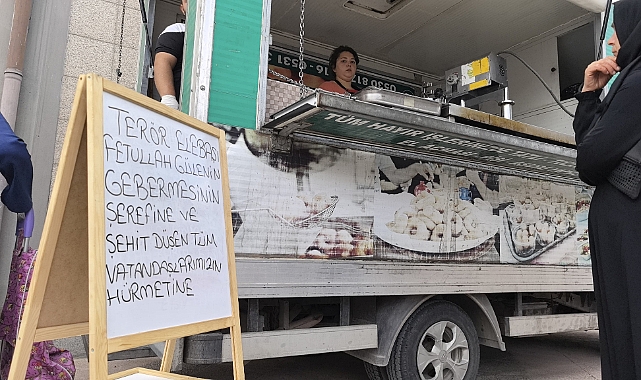 TERÖR ELEBAŞI
FETULLAH GÜLENİN
GEBERMESİNİN
ŞEREFİNE VE
ŞEHİT DÜŞEN TÜM
VATANDAŞLARIMIZIN
HÜRMETİNE
0530 8
16 - 0531
TÜM HAYIR İŞLERİNİZDE